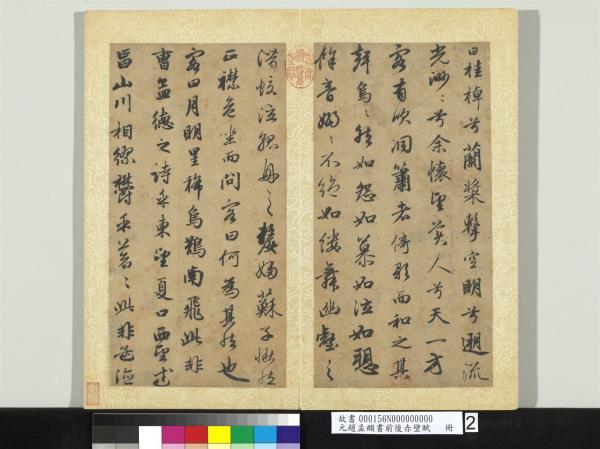 曰桂棹兮蘭槳擊空明兮遡流
光渺々兮余懷望美人兮天一方
客有吹洞簫者倚歌而和之其
聲烏々然如怨如慕如泣如愬
餘音嫋々不絕如縷舞幽壑之
潛蛟泣孤舟之嫠婦蘇子愀然
正襟危坐而問客曰何為其然也
客曰月明星稀烏鵲南飛此非
曹孟德之詩乎東望夏口西望武
昌山川相繆鬱乎蒼々此非孟德
故書 000156N000000000
元趙孟頫書前後赤壁賦 冊
2